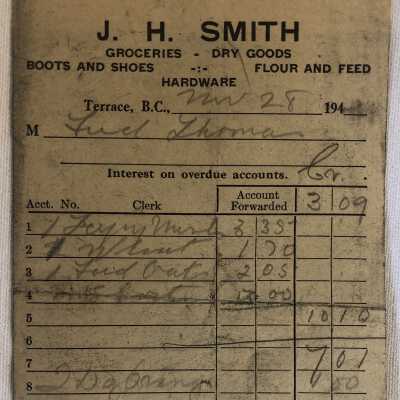 J. H. SMITH
GROCERIES - DRY GOODS
BOOTS AND SHOES -:- FLOUR AND FEED
HARDWARE
Terrace, B.C., Nov 28 194
M Fred Thomas
Cr.
Interest on overdue accounts.
Acct. No. Clerk Account Forwarded 3 09
1 1 3 35
2 1 Wheat 1 70
3 1 Oats 2 05
4 12 00
5 10 10
6
7 7 01
8 2 Dz Orang 1 00